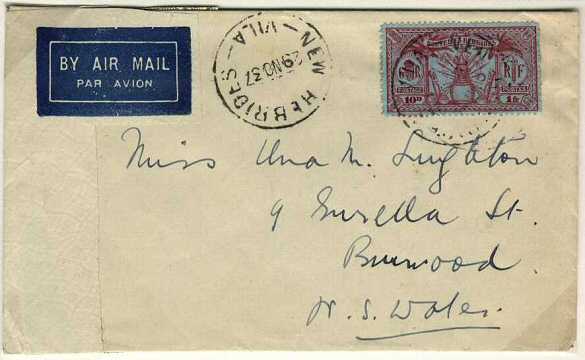 BY AIR MAIL
PAR AVION
NEW HEBRIDES
29 NO 37
— VILA —
NEW HEBRIDES
POSTAGE POSTAGE
10D 1F
Miss Una M. Leighton
9 Eurella St.
Burwood.
N. S. Wales.